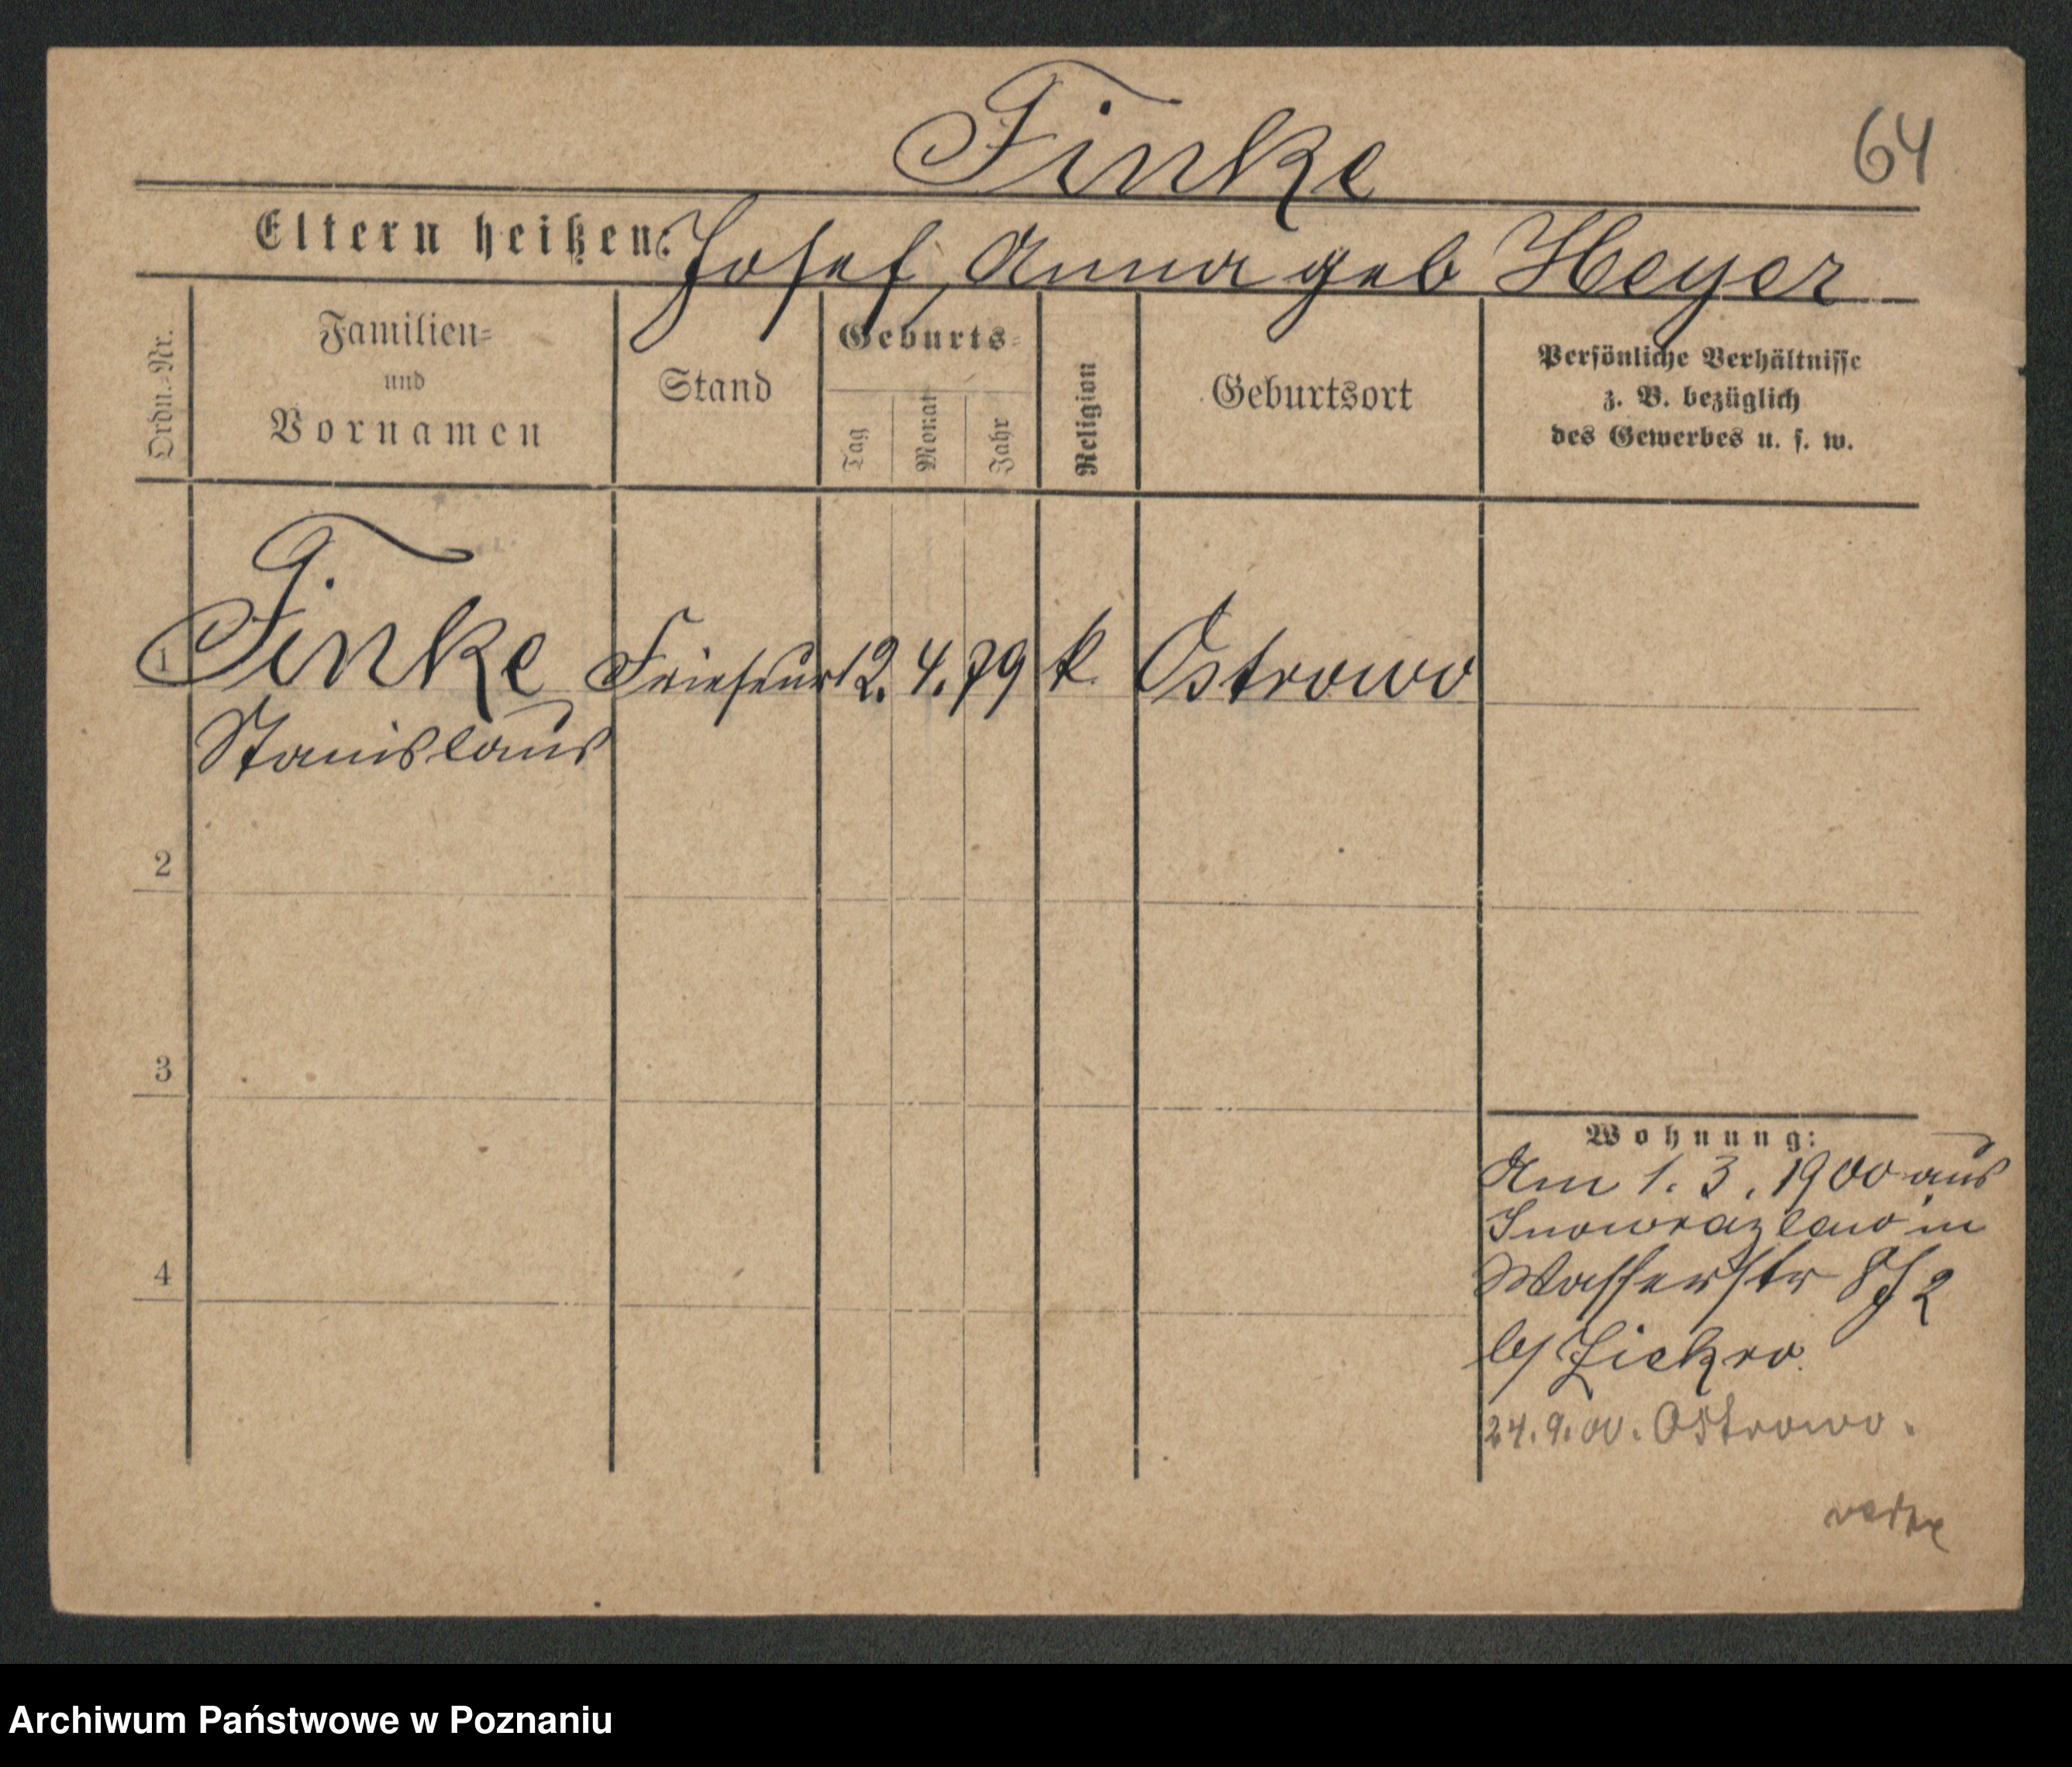 Finke
64
Eltern heißen: Josef, Anna geb Heyer
Ordn.-Nr.
Familien-
und
Vornamen
Stand
Geburts-
Tag
Monat
Jahr
Religion
Geburtsort
Persönliche Verhältnisse
z. B. bezüglich
des Gewerbes u. s. w.
1 Finke Friseur 12. 4. 79 k. Ostrowo
Stanislaus
2
3
4
Wohnung:
Am 1. 3. 1900 aus
Inowrazlaw in
Wasserstr
24. 9. 00. Ostrowo.
Archiwum Państwowe w Poznaniu